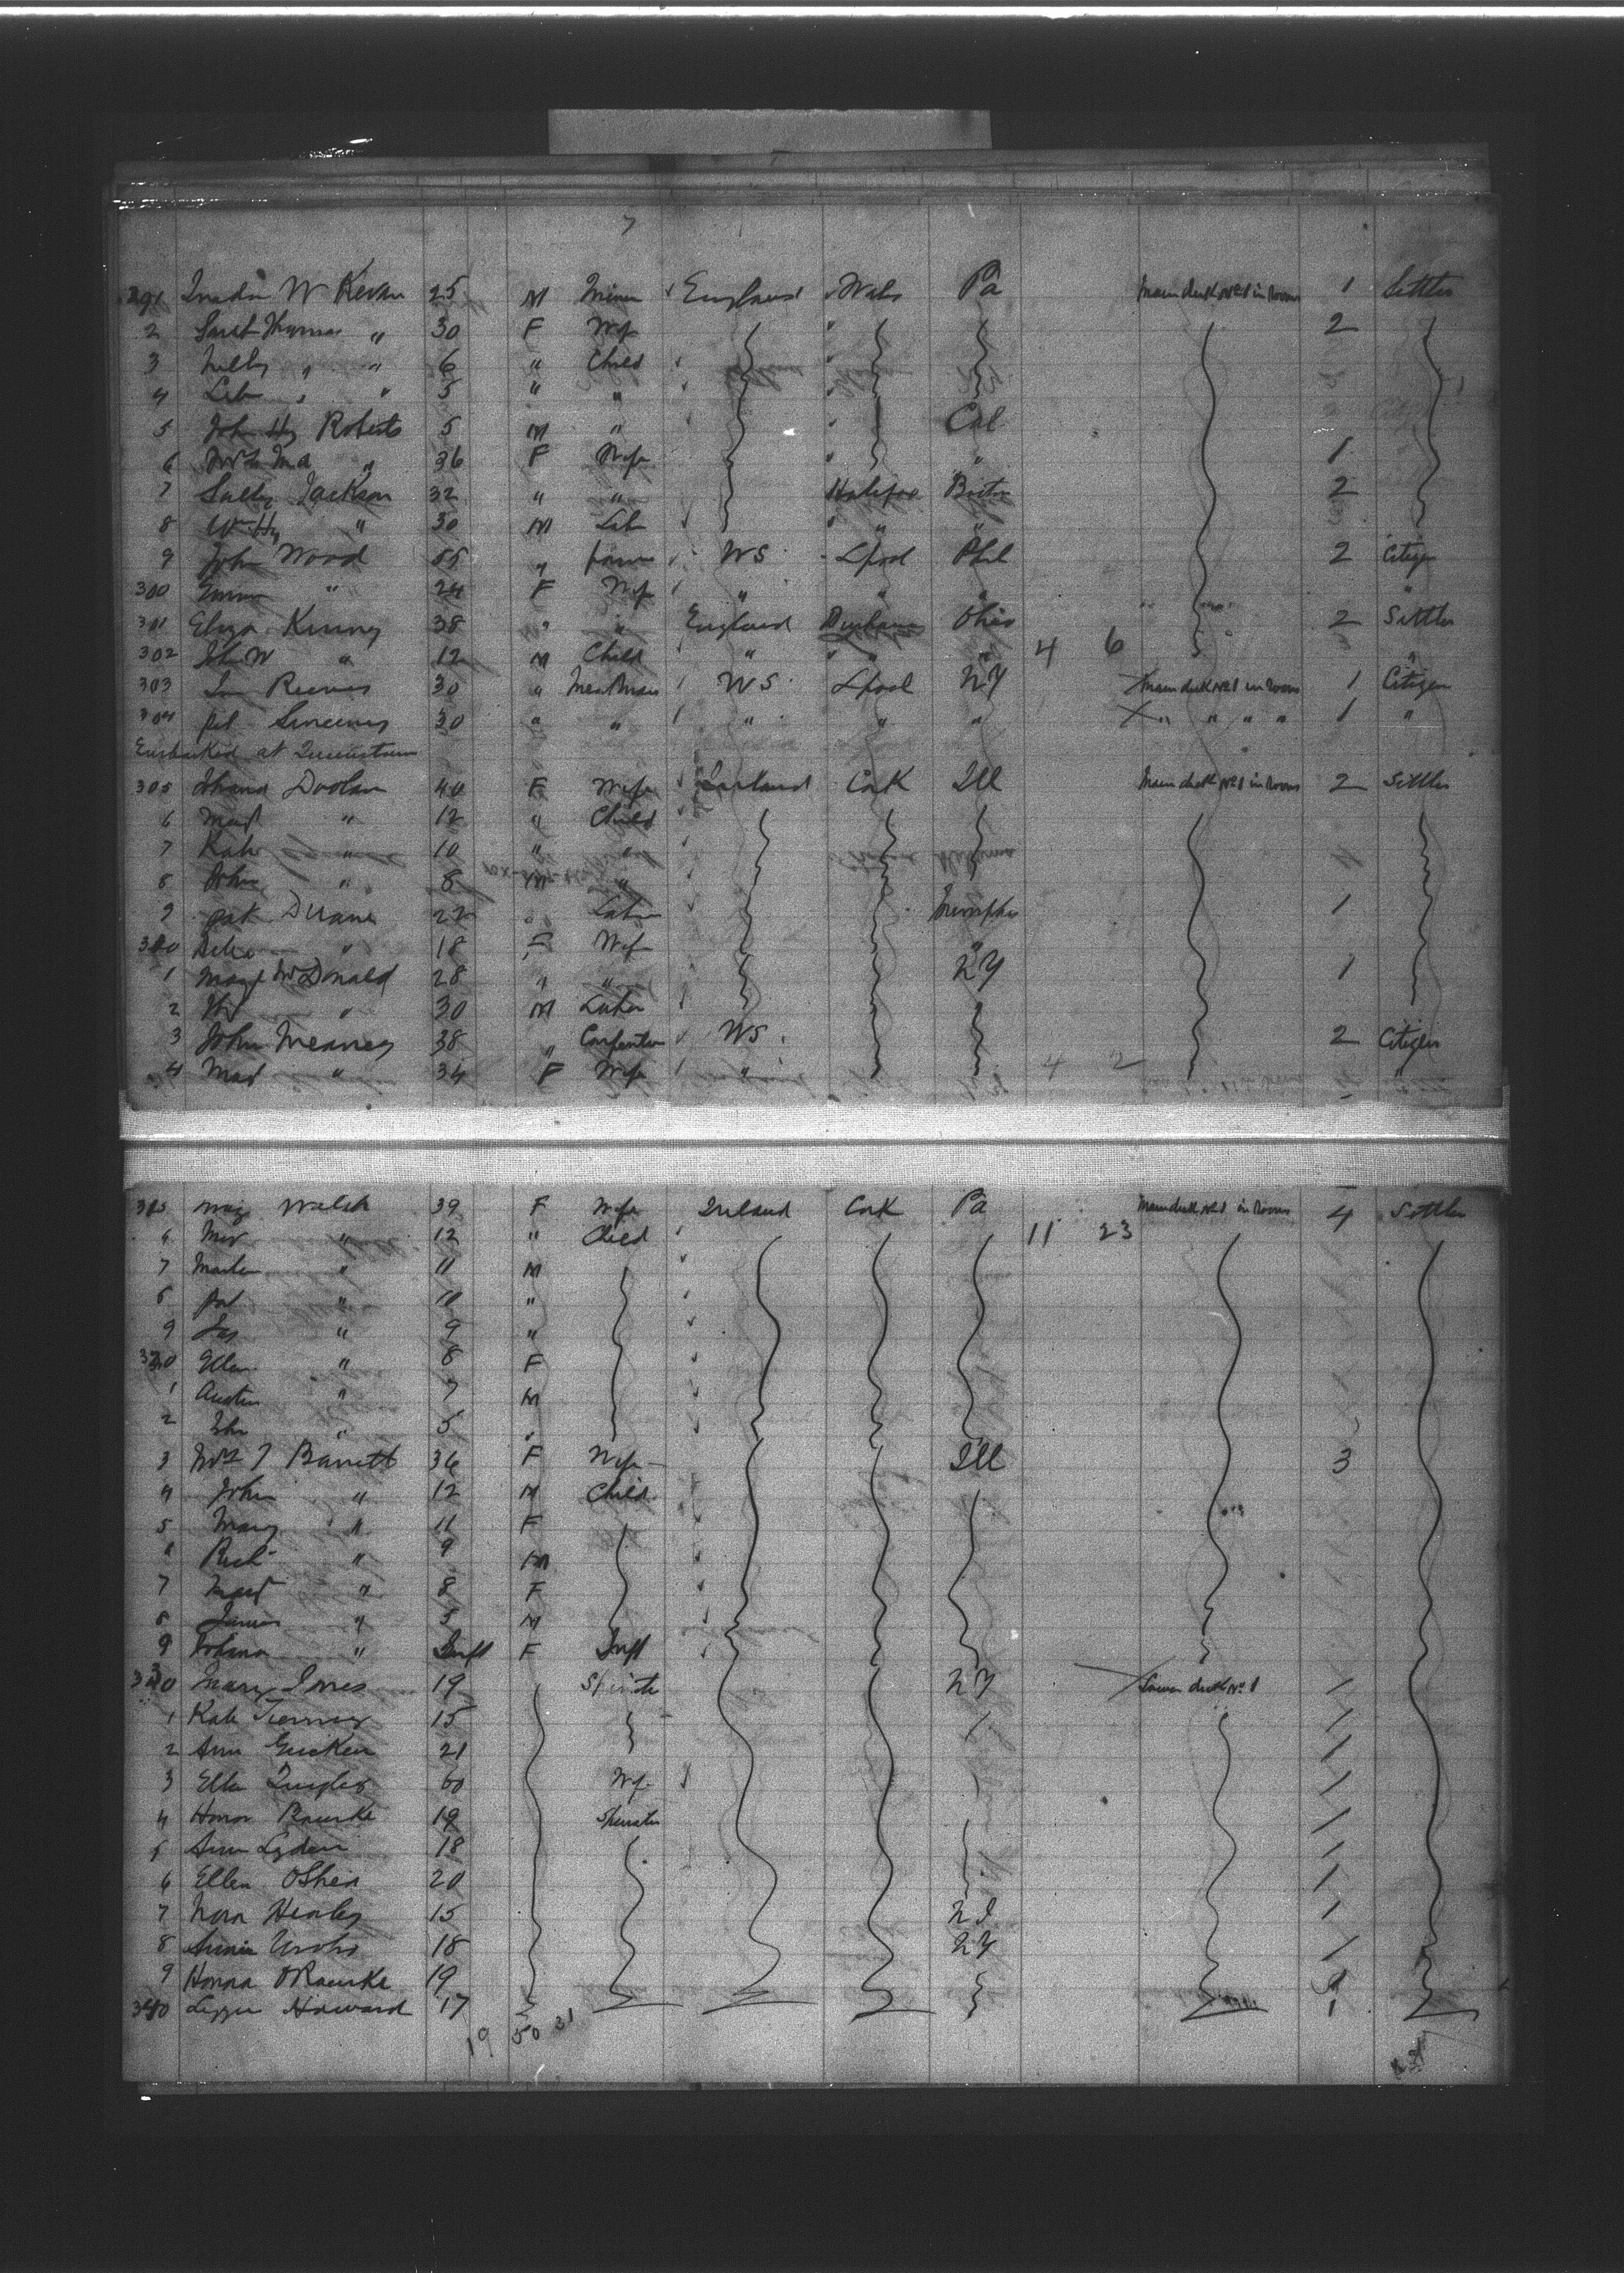 7
291 W Kevan 25 M Miner England Wales Pa Main deck No 1 in Rooms 1 Settler
2 Sarah Thomas " 30 F Wife " 2
3 Nelly " " 6 " Child "
4 " " 5 " " "
5 John Hy Roberts 5 M " " Cal
6 Mrs " 36 F Wife " " 1
7 Sally Jackson 32 " " Halifax Boston 2
8 Wm Hy " 30 M Lab " "
9 John Wood 55 " farmer US Lpool Phil 2 Citizen
300 Emma " 24 F Wife " " " "
301 Eliza Kinney 38 " " England Durham Ohio 2 Settler
302 John W " 12 M Child " " " 4 6 "
303 Reeves 30 " US Lpool NY Main deck No 1 in Rooms 1 Citizen
304 Sweeney 30 " " " " " " " " " 1 "
Embarked at Queenstown
305 Johana Doolan 40 F Wife Ireland Cork Ill Main deck No 1 in Rooms 2 Settler
6 Margt " 12 " Child
7 Kate " 10 " "
8 John " 8 M "
9 Pat Duane 22 " Labr Memphis 1
310 Delia " 18 F Wife "
1 Margt McDonald 28 " " NY 1
2 " 30 M Labor
3 John Meaney 38 " Carpenter US 2 Citizen
4 Margt " 34 F Wife " 4 2 "
315 Walsh 39 F Wife Ireland Cork Pa Main deck No 1 in Rooms 4 Settler
6 " 12 " Child 11 23
7 Martin " 11 M
8 Pat " 10 "
9 Jas " 9 "
320 Ellen " 8 F
1 Austin " 7 M
2 John " 5 "
3 Mrs Barrett 36 F Wife Ill 3
4 John " 12 M Child
5 Mary " 11 F
6 Rich " 9 M
7 Margt " 8 F
8 James " 5 M
9 Johana " Inft F Inft
330 Mary 19 Spinster NY Lower deck No 1 1
1 Kate Tierney 15 1
2 Ann 21 1
3 Ellen Quigley 60 Wife 1
4 Honor Rourke 19 Spinster 1
5 Ann Lyden 18 1
6 Ellen OShea 20 1
7 Nora Henley 15 NJ 1
8 Annie 18 NY 1
9 Honora ORourke 19 1
340 Lizzie Howard 17 1
19 50 31